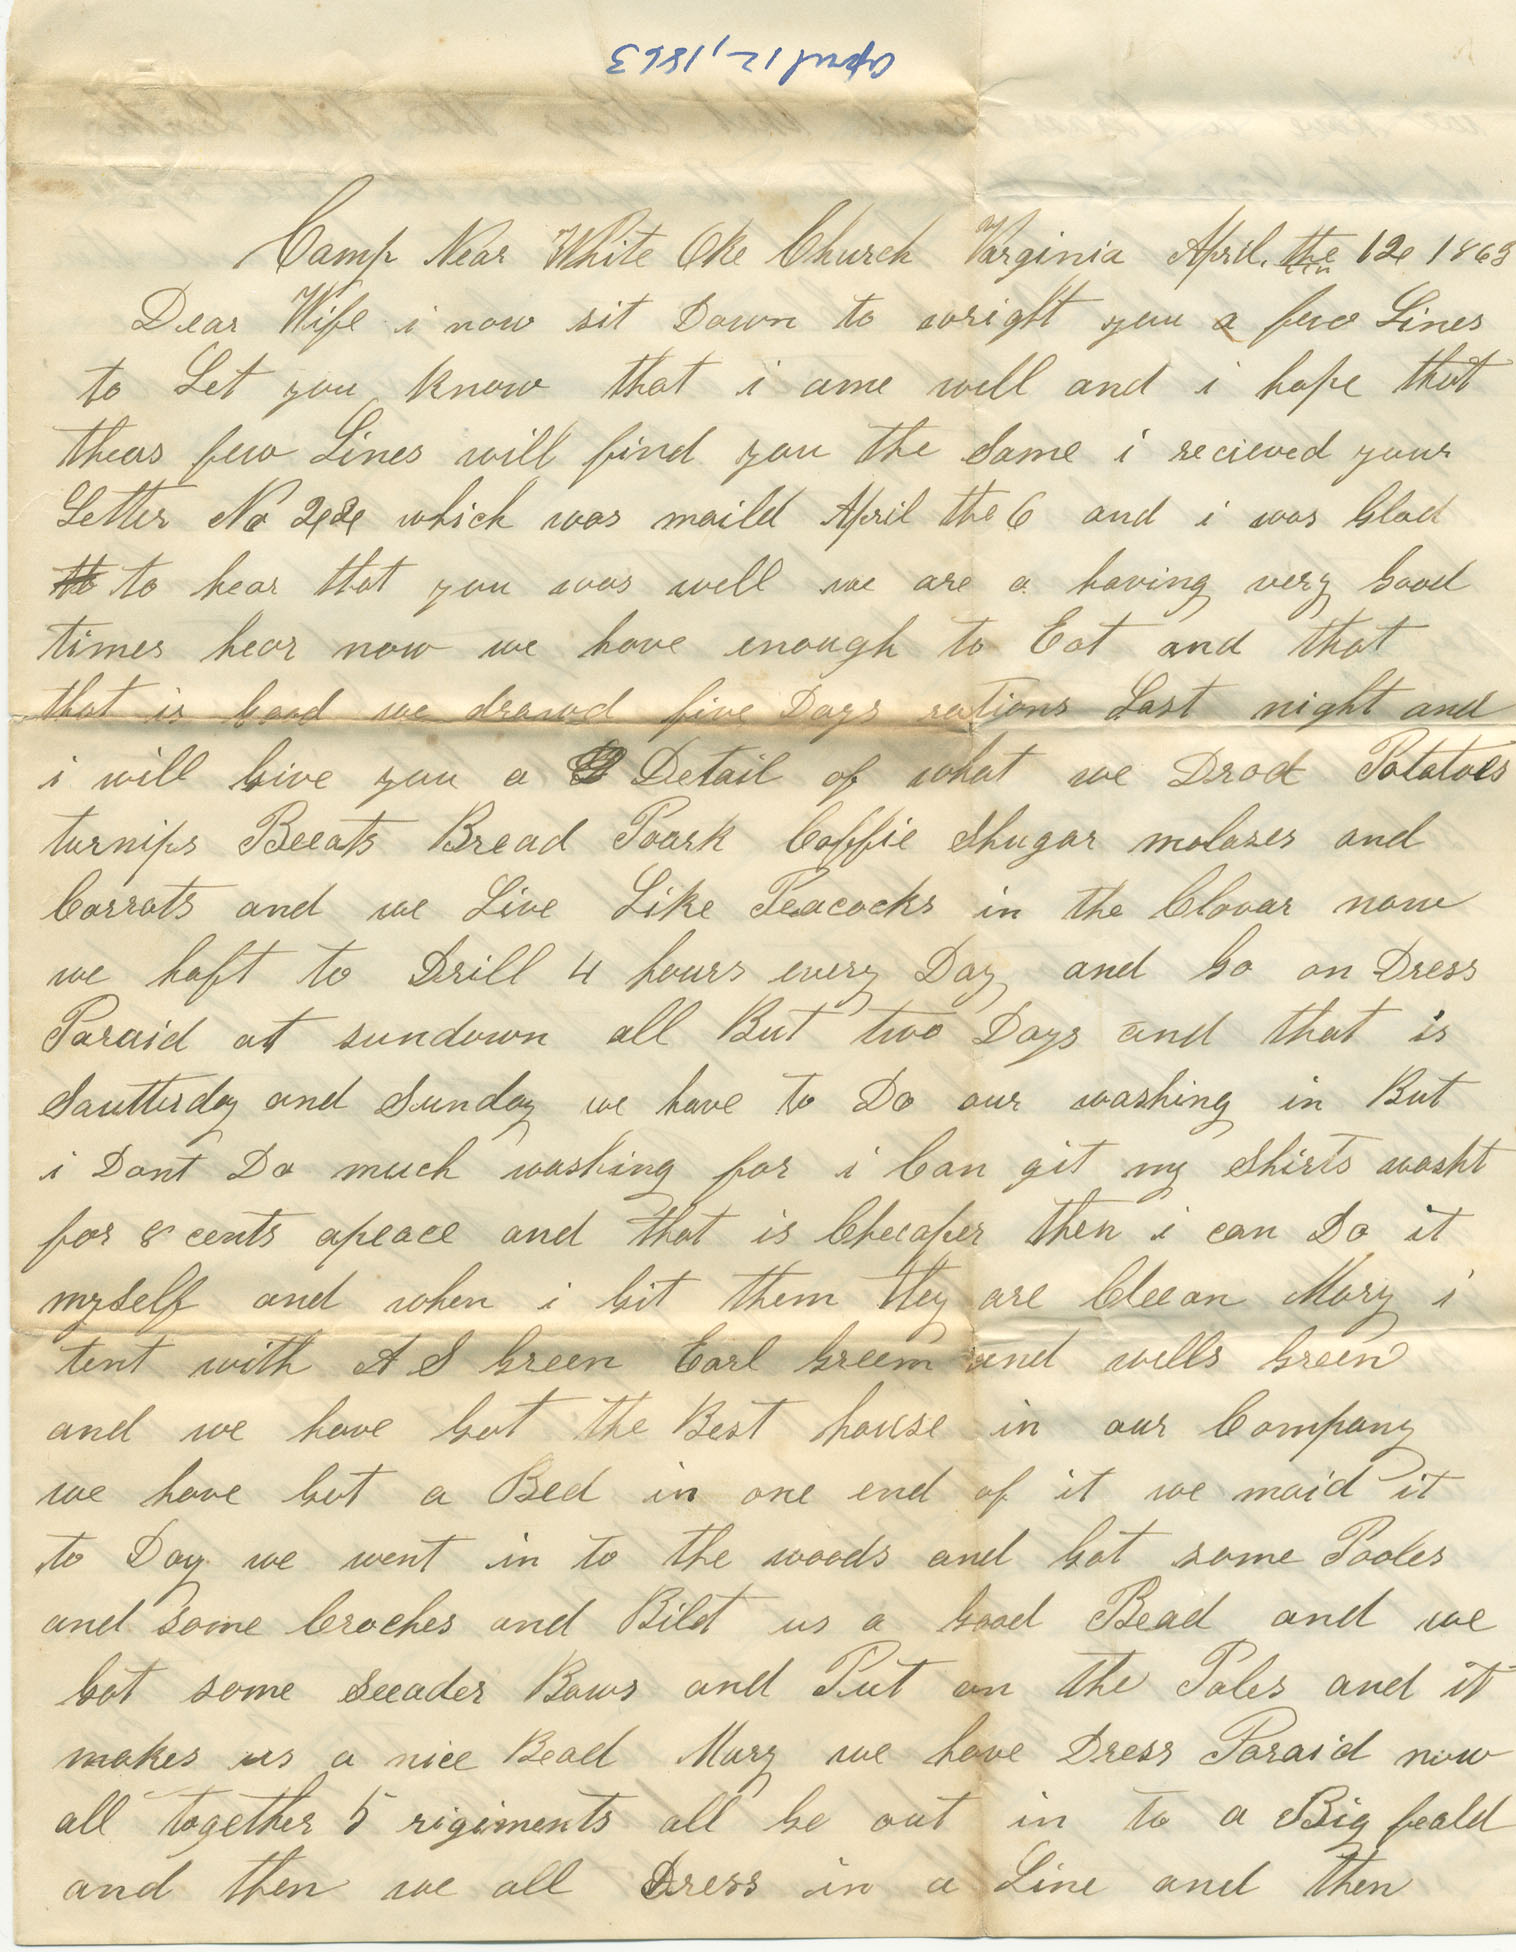 April 12, 1863
Camp Near White Oke Church Varginia April the 12 1863
Dear Wife i now sit Down to wright you a few Lines
to Let you Know that i ame well and i hope that
theas few Lines will find you the Same i recieved your
Letter No 22 which was maild April the 6 and i was Glad
to to hear that you was well we are a having very Good
times hear now we have enough to Eat and that
that is Good we drawd five Days rations Last night and
i will Give you a Detail of what we Drod Potatoes
turnips Beeats Bread Poark Coffie Shugar molases and
Carrots and we Live Like Peacocks in the Clovar now
we haft to Drill 4 hours every Day and Go on Dress
Paraid at sundown all But two Days and that is
Sautterday and Sunday we have to Do our washing in But
i Dont Do much washing for i Can git my Shirts washt
for 8 cents apeace and that is Cheeaper then i can Do it
myself and when i Git them they are Cleean Mary i
tent with A S Green Earl Green and wells Green
and we have Got the Best house in our Company
we have Got a Bed in one end of it we maid it
to Day we went in to the woods and Got some Pooles
and Some Croches and Bildt us a Good Bead and we
Got some Seeader Bows and Put on the Poles and it
makes us a nice Bead Mary we have Dress Paraid now
all together 5 rigiments all Go out in to a Big feald
and then we all Dress in a Line and then